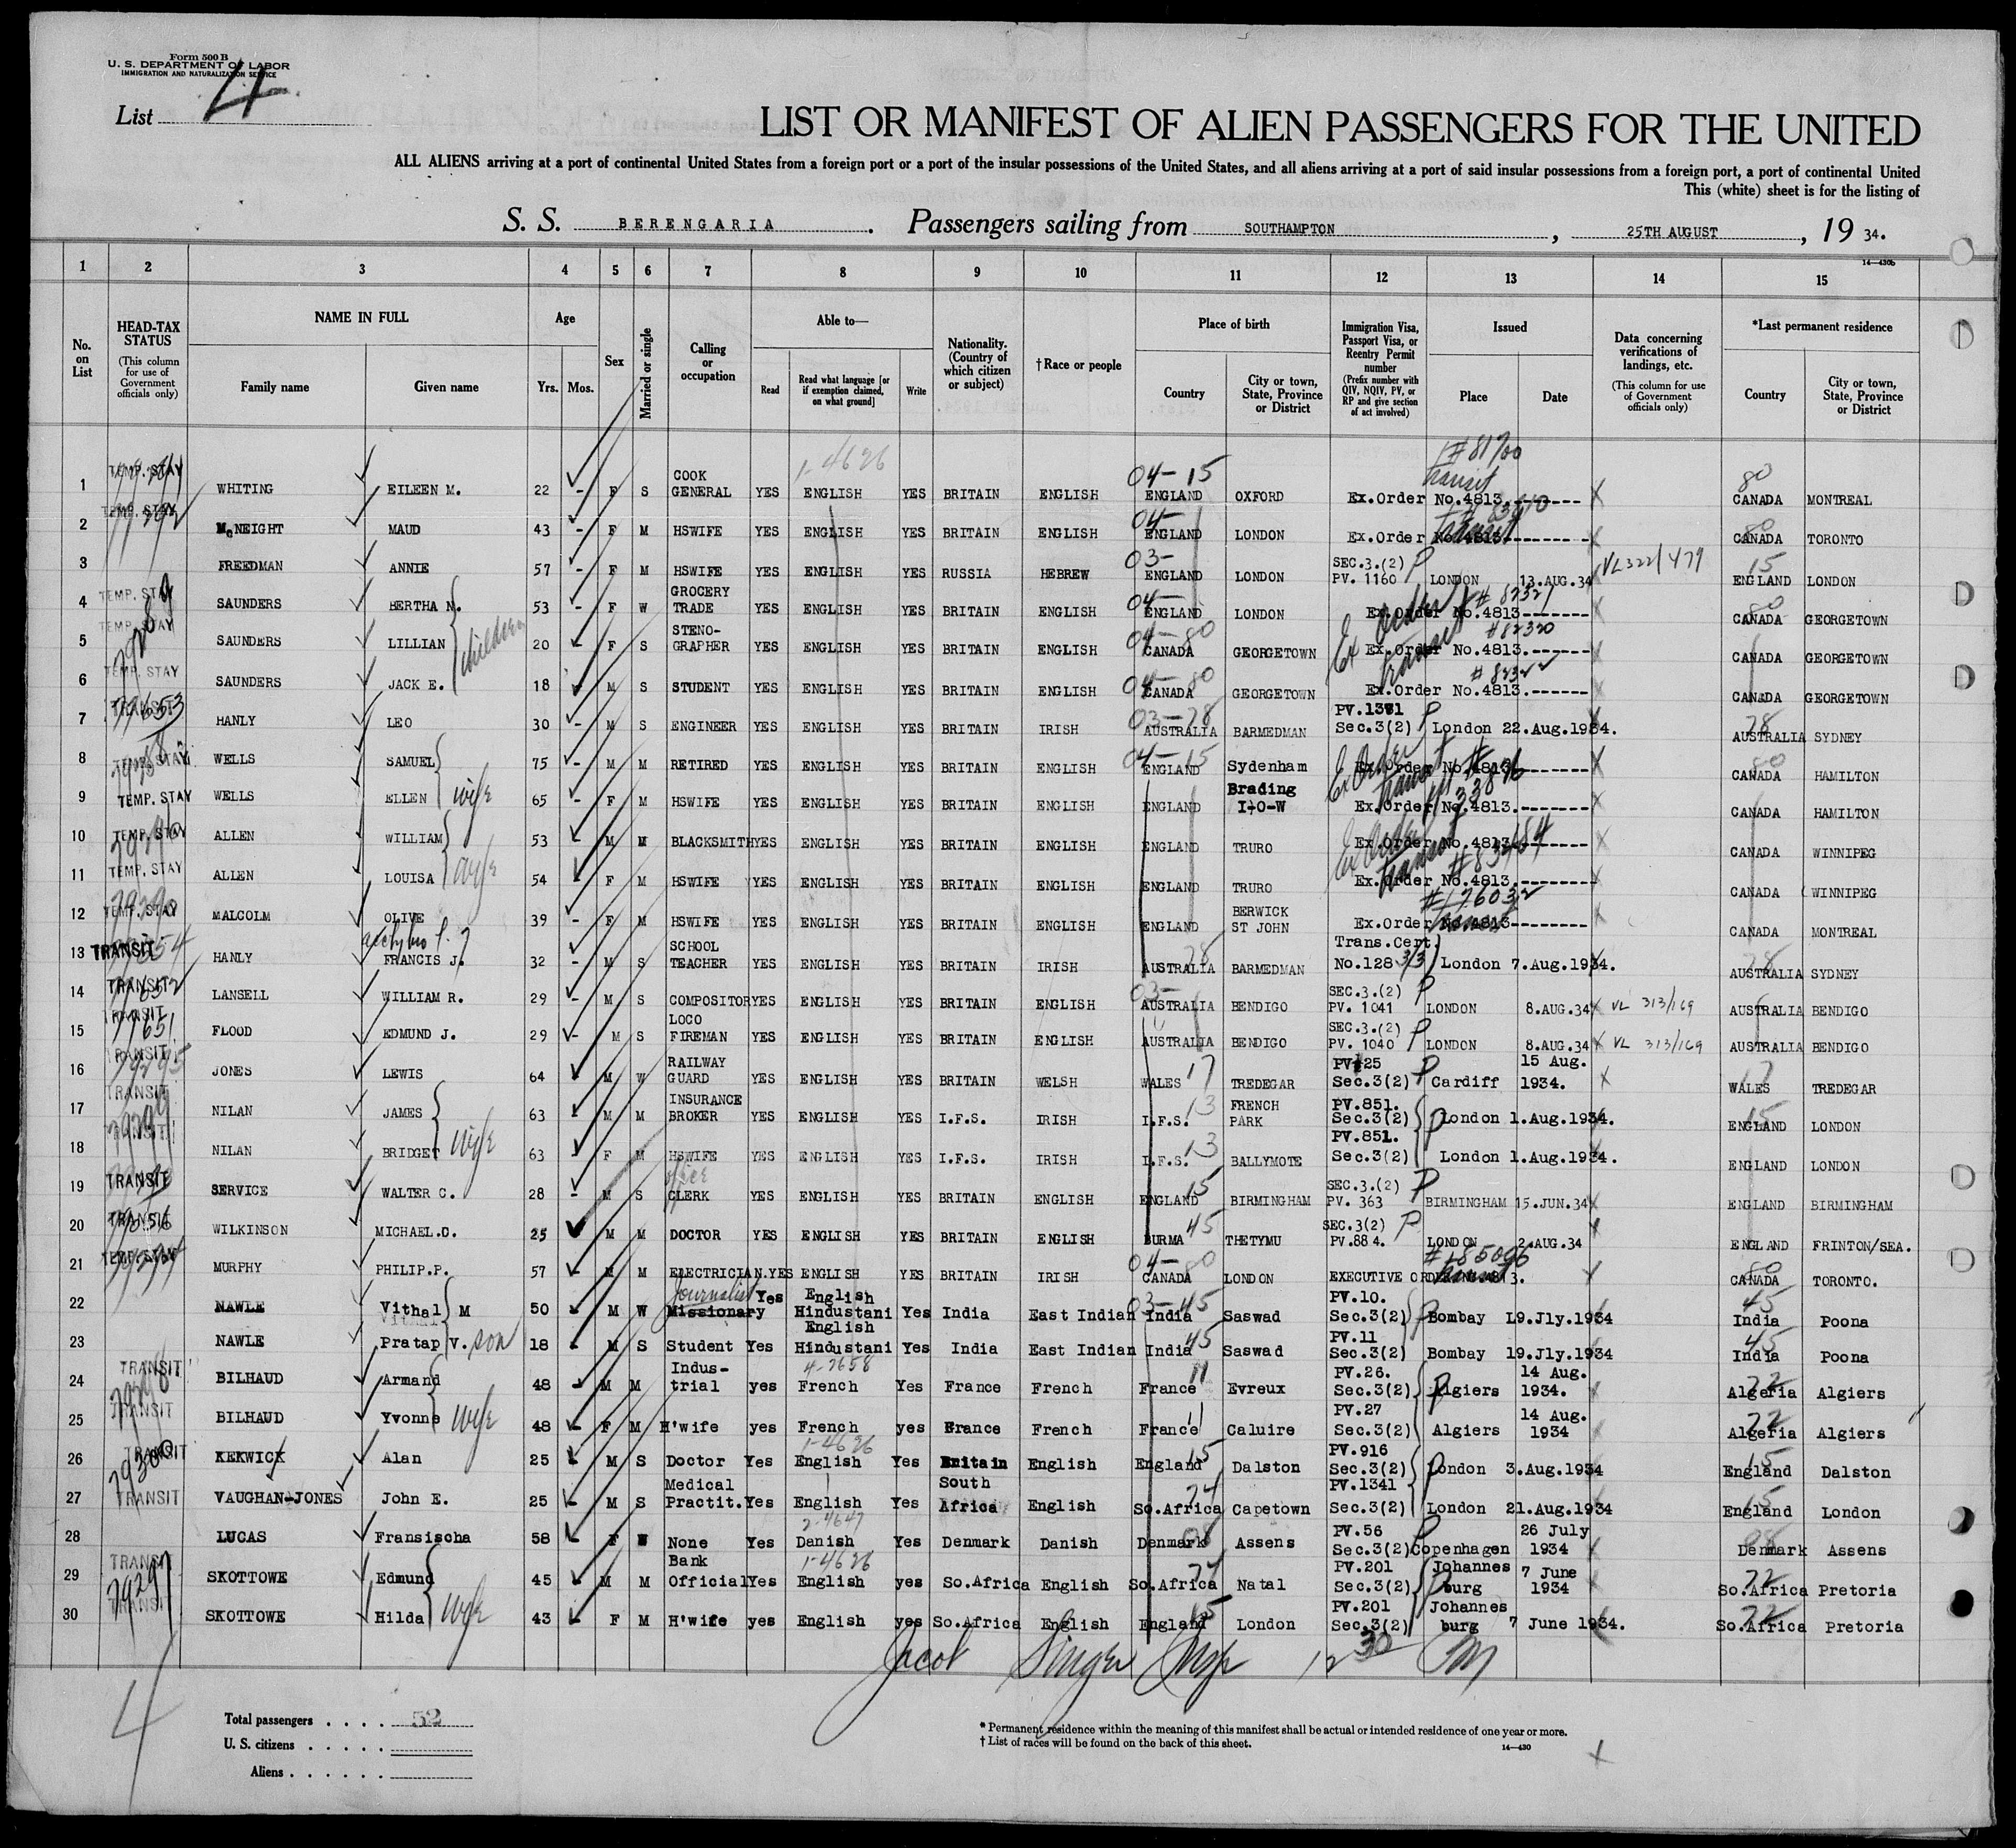 Form 500 B
U. S. DEPARTMENT OF LABOR
IMMIGRATION AND NATURALIZATION SERVICE
List 4
LIST OR MANIFEST OF ALIEN PASSENGERS FOR THE UNITED
ALL ALIENS arriving at a port of continental United States from a foreign port or a port of the insular possessions of the United States, and all aliens arriving at a port of said insular possessions from a foreign port, a port of continental United
This (white) sheet is for the listing of
S. S. BERENGARIA. Passengers sailing from SOUTHAMPTON, 25TH AUGUST, 19 34.
14—430b
1 2 3 4 5 6 7 8 9 10 11 12 13 14 15
No. on List
HEAD-TAX STATUS (This column for use of Government officials only)
NAME IN FULL Family name Given name
Age Yrs. Mos.
Sex
Married or single
Calling or occupation
Able to— Read Read what language [or if exemption claimed, on what ground] Write
Nationality. (Country of which citizen or subject)
†Race or people
Place of birth Country City or town, State, Province or District
Immigration Visa, Passport Visa, or Reentry Permit number (Prefix number with QIV, NQIV, PV, or RP and give section of act involved)
Issued Place Date
Data concerning verifications of landings, etc. (This column for use of Government officials only)
*Last permanent residence Country City or town, State, Province or District
1 TEMP. STAY WHITING EILEEN M. 22 - F S COOK GENERAL YES ENGLISH 1-4626 YES BRITAIN ENGLISH 04-15 ENGLAND OXFORD Ex.Order No.4813. transit 80 CANADA MONTREAL
2 TEMP. STAY McNEIGHT MAUD 43 - F M HSWIFE YES ENGLISH YES BRITAIN ENGLISH 04- ENGLAND LONDON Ex.Order No.4813. 80 CANADA TORONTO
3 FREEDMAN ANNIE 57 - F M HSWIFE YES ENGLISH YES RUSSIA HEBREW 03- ENGLAND LONDON SEC.3.(2) PV. 1160 P LONDON 13.AUG.34 VL322/479 15 ENGLAND LONDON
4 TEMP. STAY SAUNDERS BERTHA N. 53 - F W GROCERY TRADE YES ENGLISH YES BRITAIN ENGLISH 04- ENGLAND LONDON Ex.Order No.4813. #82321 80 CANADA GEORGETOWN
5 TEMP. STAY SAUNDERS LILLIAN children 20 - F S STENO-GRAPHER YES ENGLISH YES BRITAIN ENGLISH 04-80 CANADA GEORGETOWN Ex.Order No.4813. #82320 CANADA GEORGETOWN
6 TEMP. STAY SAUNDERS JACK E. 18 - M S STUDENT YES ENGLISH YES BRITAIN ENGLISH 04-80 CANADA GEORGETOWN Ex.Order No.4813. #82322 CANADA GEORGETOWN
7 TRANSIT HANLY LEO 30 - M S ENGINEER YES ENGLISH YES BRITAIN IRISH 03-78 AUSTRALIA BARMEDMAN PV.1371 Sec.3(2) P London 22.Aug.1934. 78 AUSTRALIA SYDNEY
8 TEMP. STAY WELLS SAMUEL 75 - M M RETIRED YES ENGLISH YES BRITAIN ENGLISH 04-15 ENGLAND Sydenham Ex.Order No.4813 80 CANADA HAMILTON
9 TEMP. STAY WELLS ELLEN wife 65 - F M HSWIFE YES ENGLISH YES BRITAIN ENGLISH ENGLAND Brading I-O-W Ex.Order No.4813. CANADA HAMILTON
10 TEMP. STAY ALLEN WILLIAM 53 - M M BLACKSMITH YES ENGLISH YES BRITAIN ENGLISH ENGLAND TRURO Ex.Order No.4813 CANADA WINNIPEG
11 TEMP. STAY ALLEN LOUISA wife 54 - F M HSWIFE YES ENGLISH YES BRITAIN ENGLISH ENGLAND TRURO Ex.Order No.4813. CANADA WINNIPEG
12 TEMP. STAY MALCOLM OLIVE 39 - F M HSWIFE YES ENGLISH YES BRITAIN ENGLISH ENGLAND BERWICK ST JOHN Ex.Order No.4813 #176032 CANADA MONTREAL
13 TRANSIT HANLY FRANCIS J. 32 - M S SCHOOL TEACHER YES ENGLISH YES BRITAIN IRISH 78 AUSTRALIA BARMEDMAN Trans.Cert. No.128 3/3 London 7.Aug.1934. 78 AUSTRALIA SYDNEY
14 TRANSIT LANSELL WILLIAM R. 29 - M S COMPOSITOR YES ENGLISH YES BRITAIN ENGLISH 03- AUSTRALIA BENDIGO SEC.3.(2) PV. 1041 P LONDON 8.AUG.34 VL 313/169 AUSTRALIA BENDIGO
15 TRANSIT FLOOD EDMUND J. 29 - M S LOCO FIREMAN YES ENGLISH YES BRITAIN ENGLISH AUSTRALIA BENDIGO SEC.3.(2) PV. 1040 P LONDON 8.AUG.34 VL 313/169 AUSTRALIA BENDIGO
16 TRANSIT JONES LEWIS 64 - M W RAILWAY GUARD YES ENGLISH YES BRITAIN WELSH WALES 17 TREDEGAR PV#25 Sec.3(2) P Cardiff 15 Aug. 1934. 17 WALES TREDEGAR
17 TRANSIT NILAN JAMES 63 - M M INSURANCE BROKER YES ENGLISH YES I.F.S. IRISH I.F.S. 13 FRENCH PARK PV.851. Sec.3(2) P London 1.Aug.1934. 15 ENGLAND LONDON
18 TRANSIT NILAN BRIDGET wife 63 - F M HSWIFE YES ENGLISH YES I.F.S. IRISH I.F.S. 13 BALLYMOTE PV.851. Sec.3(2) London 1.Aug.1934. ENGLAND LONDON
19 TRANSIT SERVICE WALTER C. 28 - M S office CLERK YES ENGLISH YES BRITAIN ENGLISH ENGLAND 15 BIRMINGHAM SEC.3.(2) PV. 363 P BIRMINGHAM 15.JUN.34 ENGLAND BIRMINGHAM
20 TRANSIT WILKINSON MICHAEL.D. 25 M M DOCTOR YES ENGLISH YES BRITAIN ENGLISH BURMA 45 THETYMU SEC.3(2) PV.884. P LONDON 2.AUG.34 ENGLAND FRINTON/SEA.
21 TEMP. STAY MURPHY PHILIP.P. 57 - M M ELECTRICIAN. YES ENGLISH YES BRITAIN IRISH 04-80 CANADA LONDON EXECUTIVE ORDER NO.4813. 80 CANADA TORONTO.
22 NAWLE Vithal M 50 - M W Journalist Missionary Yes English Hindustani Yes India East Indian 03-45 India Saswad PV.10. Sec.3(2) P Bombay 19.Jly.1934 45 India Poona
23 NAWLE Pratap V. son 18 - M S Student Yes English Hindustani Yes India East Indian India 45 Saswad PV.11 Sec.3(2) Bombay 19.Jly.1934 45 India Poona
24 TRANSIT BILHAUD Armand 48 - M M Indus-trial yes French 4-2658 Yes France French France 11 Evreux PV.26. Sec.3(2) P Algiers 14 Aug. 1934. 72 Algeria Algiers
25 TRANSIT BILHAUD Yvonne wife 48 - F M H'wife yes French yes France French France 11 Caluire PV.27 Sec.3(2) Algiers 14 Aug. 1934 72 Algeria Algiers
26 TRANSIT KEKWICK Alan 25 - M S Doctor Yes English 1-4626 Yes Britain English England 15 Dalston PV.916 Sec.3(2) London 3.Aug.1934 15 England Dalston
27 TRANSIT VAUGHAN-JONES John E. 25 - M S Medical Practit. Yes English Yes South Africa English So.Africa 74 Capetown PV.1341 Sec.3(2) London 21.Aug.1934 15 England London
28 LUCAS Fransischa 58 - F W None Yes Danish 2-4647 Yes Denmark Danish Denmark 08 Assens PV.56 Sec.3(2) P Copenhagen 26 July 1934 08 Denmark Assens
29 TRANSIT SKOTTOWE Edmund 45 - M M Bank Official Yes English 1-4626 yes So.Africa English So.Africa 74 Natal PV.201 Sec.3(2) P Johannesburg 7 June 1934 72 So.Africa Pretoria
30 TRANSIT SKOTTOWE Hilda wife 43 - F M H'wife yes English yes So.Africa English England 15 London PV.201 Sec.3(2) Johannesburg 7 June 1934. 72 So.Africa Pretoria
Jacob Singer Insp 12 30 PM
4
Total passengers . . . . 52
U. S. citizens . . . . .
Aliens . . . . . .
* Permanent residence within the meaning of this manifest shall be actual or intended residence of one year or more.
† List of races will be found on the back of this sheet.
14—430